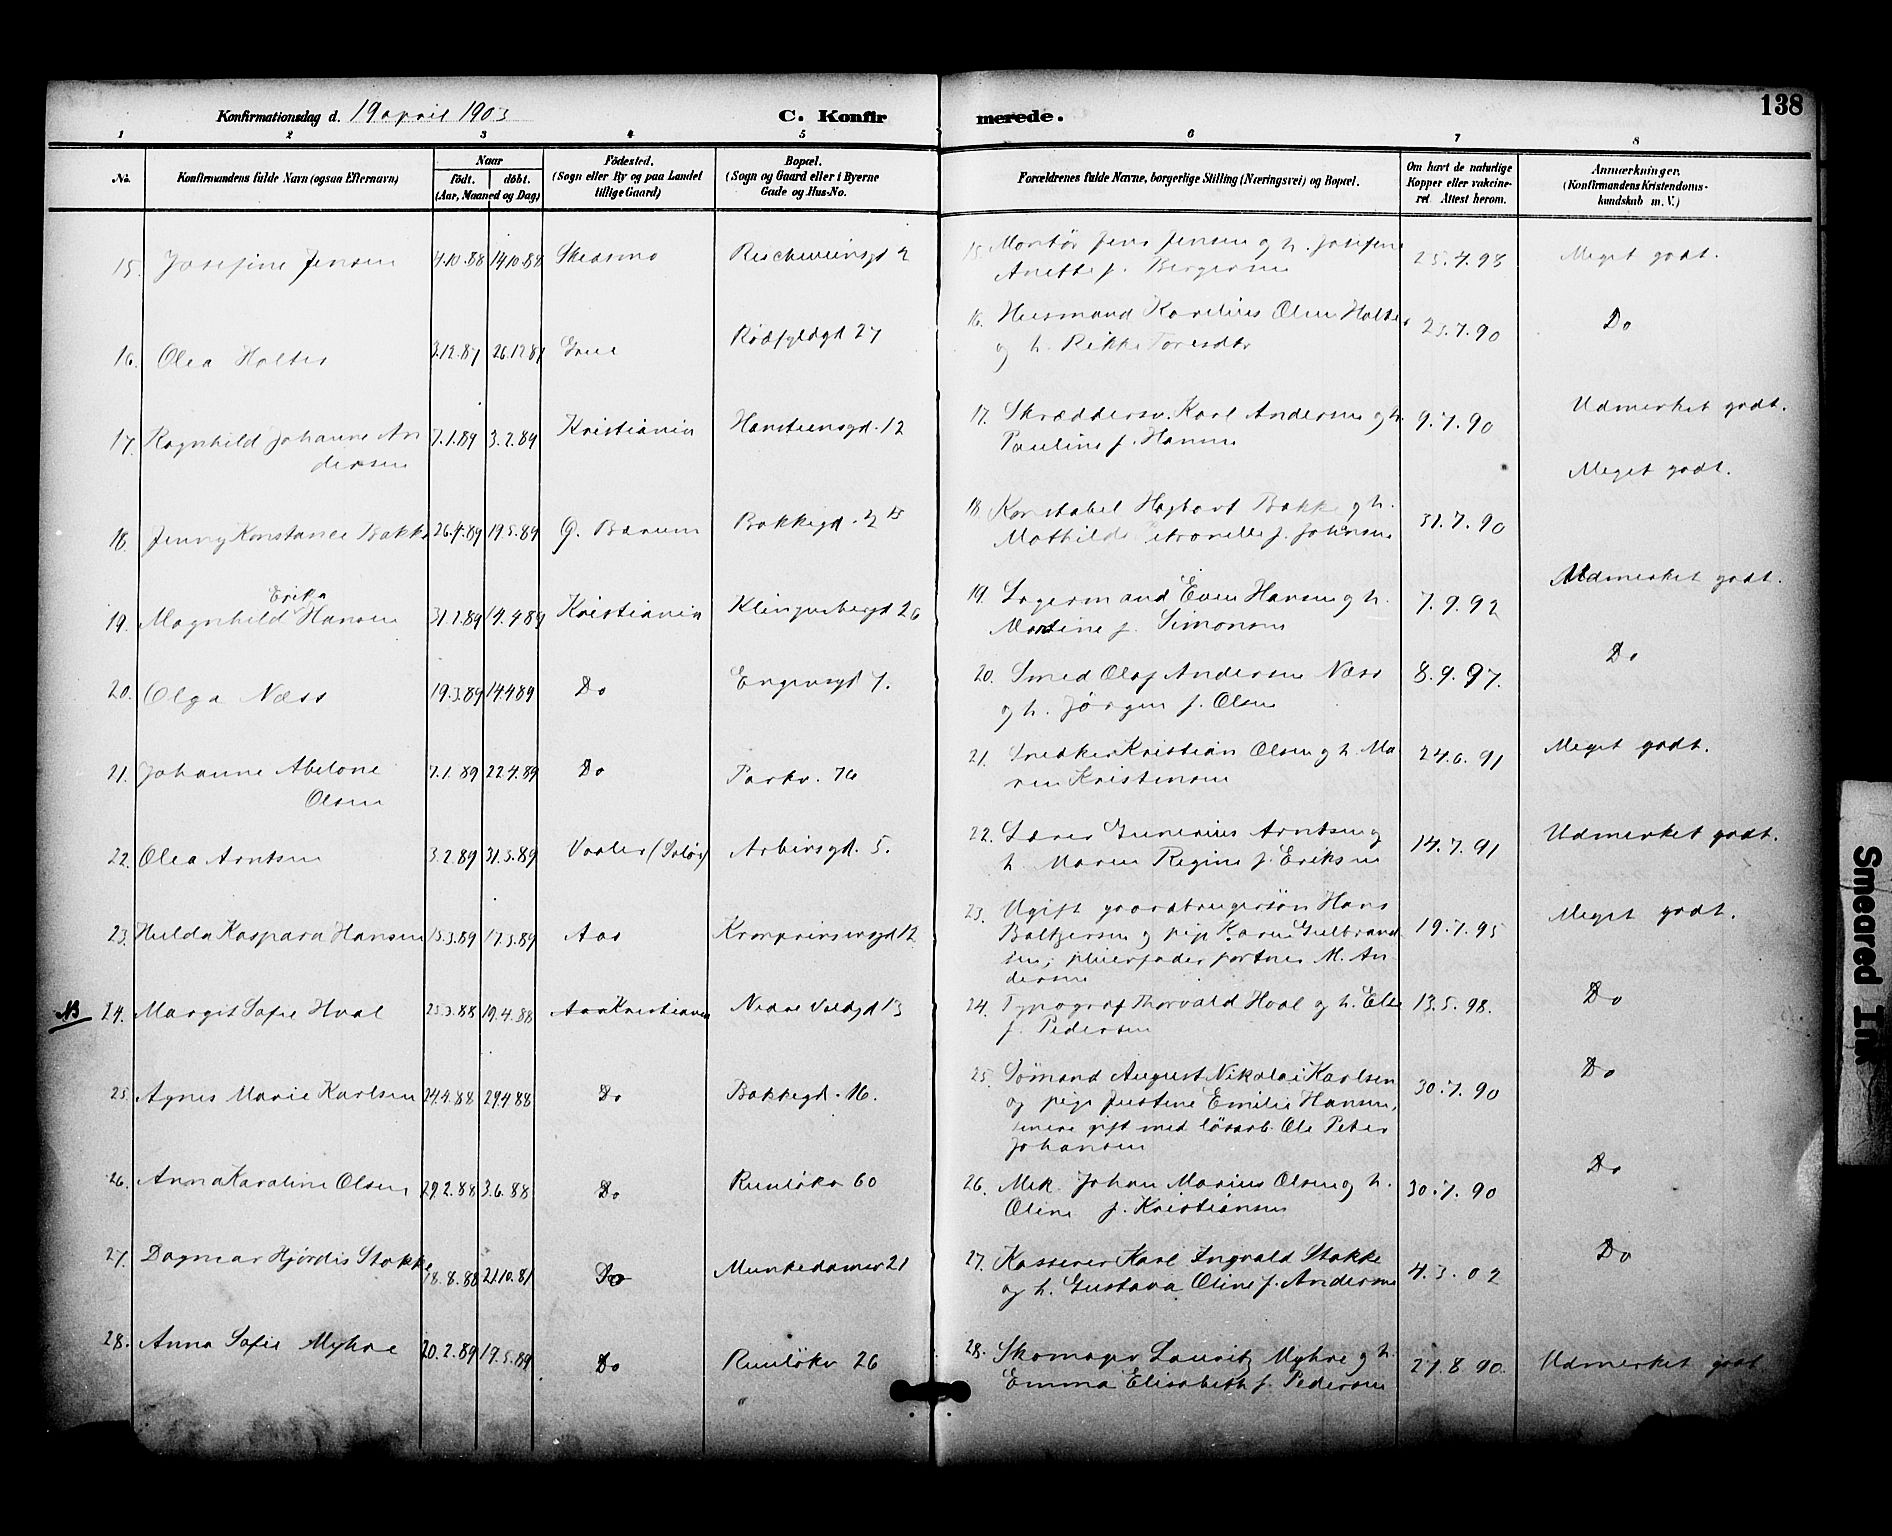 138
Konfirmationsdag d. 19 april 1903
C. Konfirmerede.
1 2 3 4 5 6 7 8
No.
Konfirmandens fulde Navn (ogsaa Efternavn)
Naar
födt. döbt.
(Aar, Maaned og Dag)
Födested.
(Sogn eller By og paa Landet
tillige Gaard)
Bopæl.
(Sogn og Gaard eller i Byerne
Gade og Hus-No.
Forældrenes fulde Navne, borgerlige Stilling (Næringsvei) og Bopæl.
Om havt de naturlige
Kopper eller vakcine-
ret Attest herom.
Anmærkninger.
(Konfirmandens Kristendoms-
kundskab m. V.)
15. Josefine Jensen 4.10.88 14.10.88 Skedsmo 2 15. Montør Jens Jensen og h. Josefine
Anette f. Bergersen 25.4.93 Meget godt.
16. Olea Holter 3.12.87 26.12.87 Grue Rödfyldgd 27 16. Huusmand Karelius Olsen Holter
og h. Rikke Toresdtr 23.7.90 Do
17. Ragnhild Johanne An
dersen 7.1.89 3.2.89 Kristiania Hansteensgd. 12 17. Skræddersv. Karl Andersen og h.
Pauline f. Hansen 9.7.90 Udmerket godt.
18. Jenny Konstance Bakke 26.4.89 19.5.89 Ø. Bærum Bakkegd. 18 Konstabel Hagbart Bakke og h.
Mathilde Petronelle f. Johansen 31.7.90 Meget godt.
19. Magnhild Erika Hansen 31.1.89 14.4.89 Kristiania Klingenbergd 26 19. Lagermand Even Hansen og h.
Martine f. Simonsen 7.9.92 Udmerket godt.
20. Olga Næss 19.3.89 14.4.89 Do Engensgd 7. 20. Smed Olaf Andersen Næss
og h. Jörgine f. Olsen 8.9.97. Do
21. Johanne Abelone
Olsen 7.1.89 22.4.89 Do Parkv. 76 21. Snedker Kristian Olsen og h. Ma
ren Kristensen 24.6.91 Meget godt.
22. Olea Arntsen 3.2.89 31.3.89 Vaaler (Solør) Arbinsgd. 5. 22. Lærer Gunerius Arntsen og
h. Maren Regine f. Eriksen 14.7.91 Udmerket godt.
23. Hulda Kaspara Hansen 15.3.89 17.3.89 Aas Kronprinsensgd 12 23. Ugift gaardbrugersön Hans
Baltzersen og pige Karen Gulbrand
sen; pleierfader portner M. An
dersen 19.7.95 Meget godt.
NB 24. Margit Sofie Hval 25.3.88 19.4.88 Kristiania Nedre Voldgd 13 24. Typograf Thorvald Hval og h. Elise
f. Pedersen 13.5.98. Do
25. Agnes Marie Karlsen 24.4.88 29.4.88 Do Bakkegd. 16. 25. Sömand August Nikolai Karlsen
og pige Justine Emilie Hansen,
senere gift med lösarb. Ole Peter
Johansen 30.7.90 Do
26. Anna Karoline Olsen 29.2.88 3.6.88 Do Ruselökv 60 26. Mek. Johan Marius Olsen og h.
Oline f. Kristiansen 30.7.90 Do
27. Dagmar Hjördis Stokke 18.8.88 21.10.88 Do Munkedamsv 21 27. Kasserer Karl Ingvald Stokke
og h. Gustava Oline f. Andersen 4.3.02 Do
28. Anna Sofie Myhre 20.2.89 19.5.89 Do Ruselökv 26 28. Skomager Lauritz Myhre og h.
Emma Elisabeth f. Pedersen 27.8.90. Udmerket godt
Smeared Ink